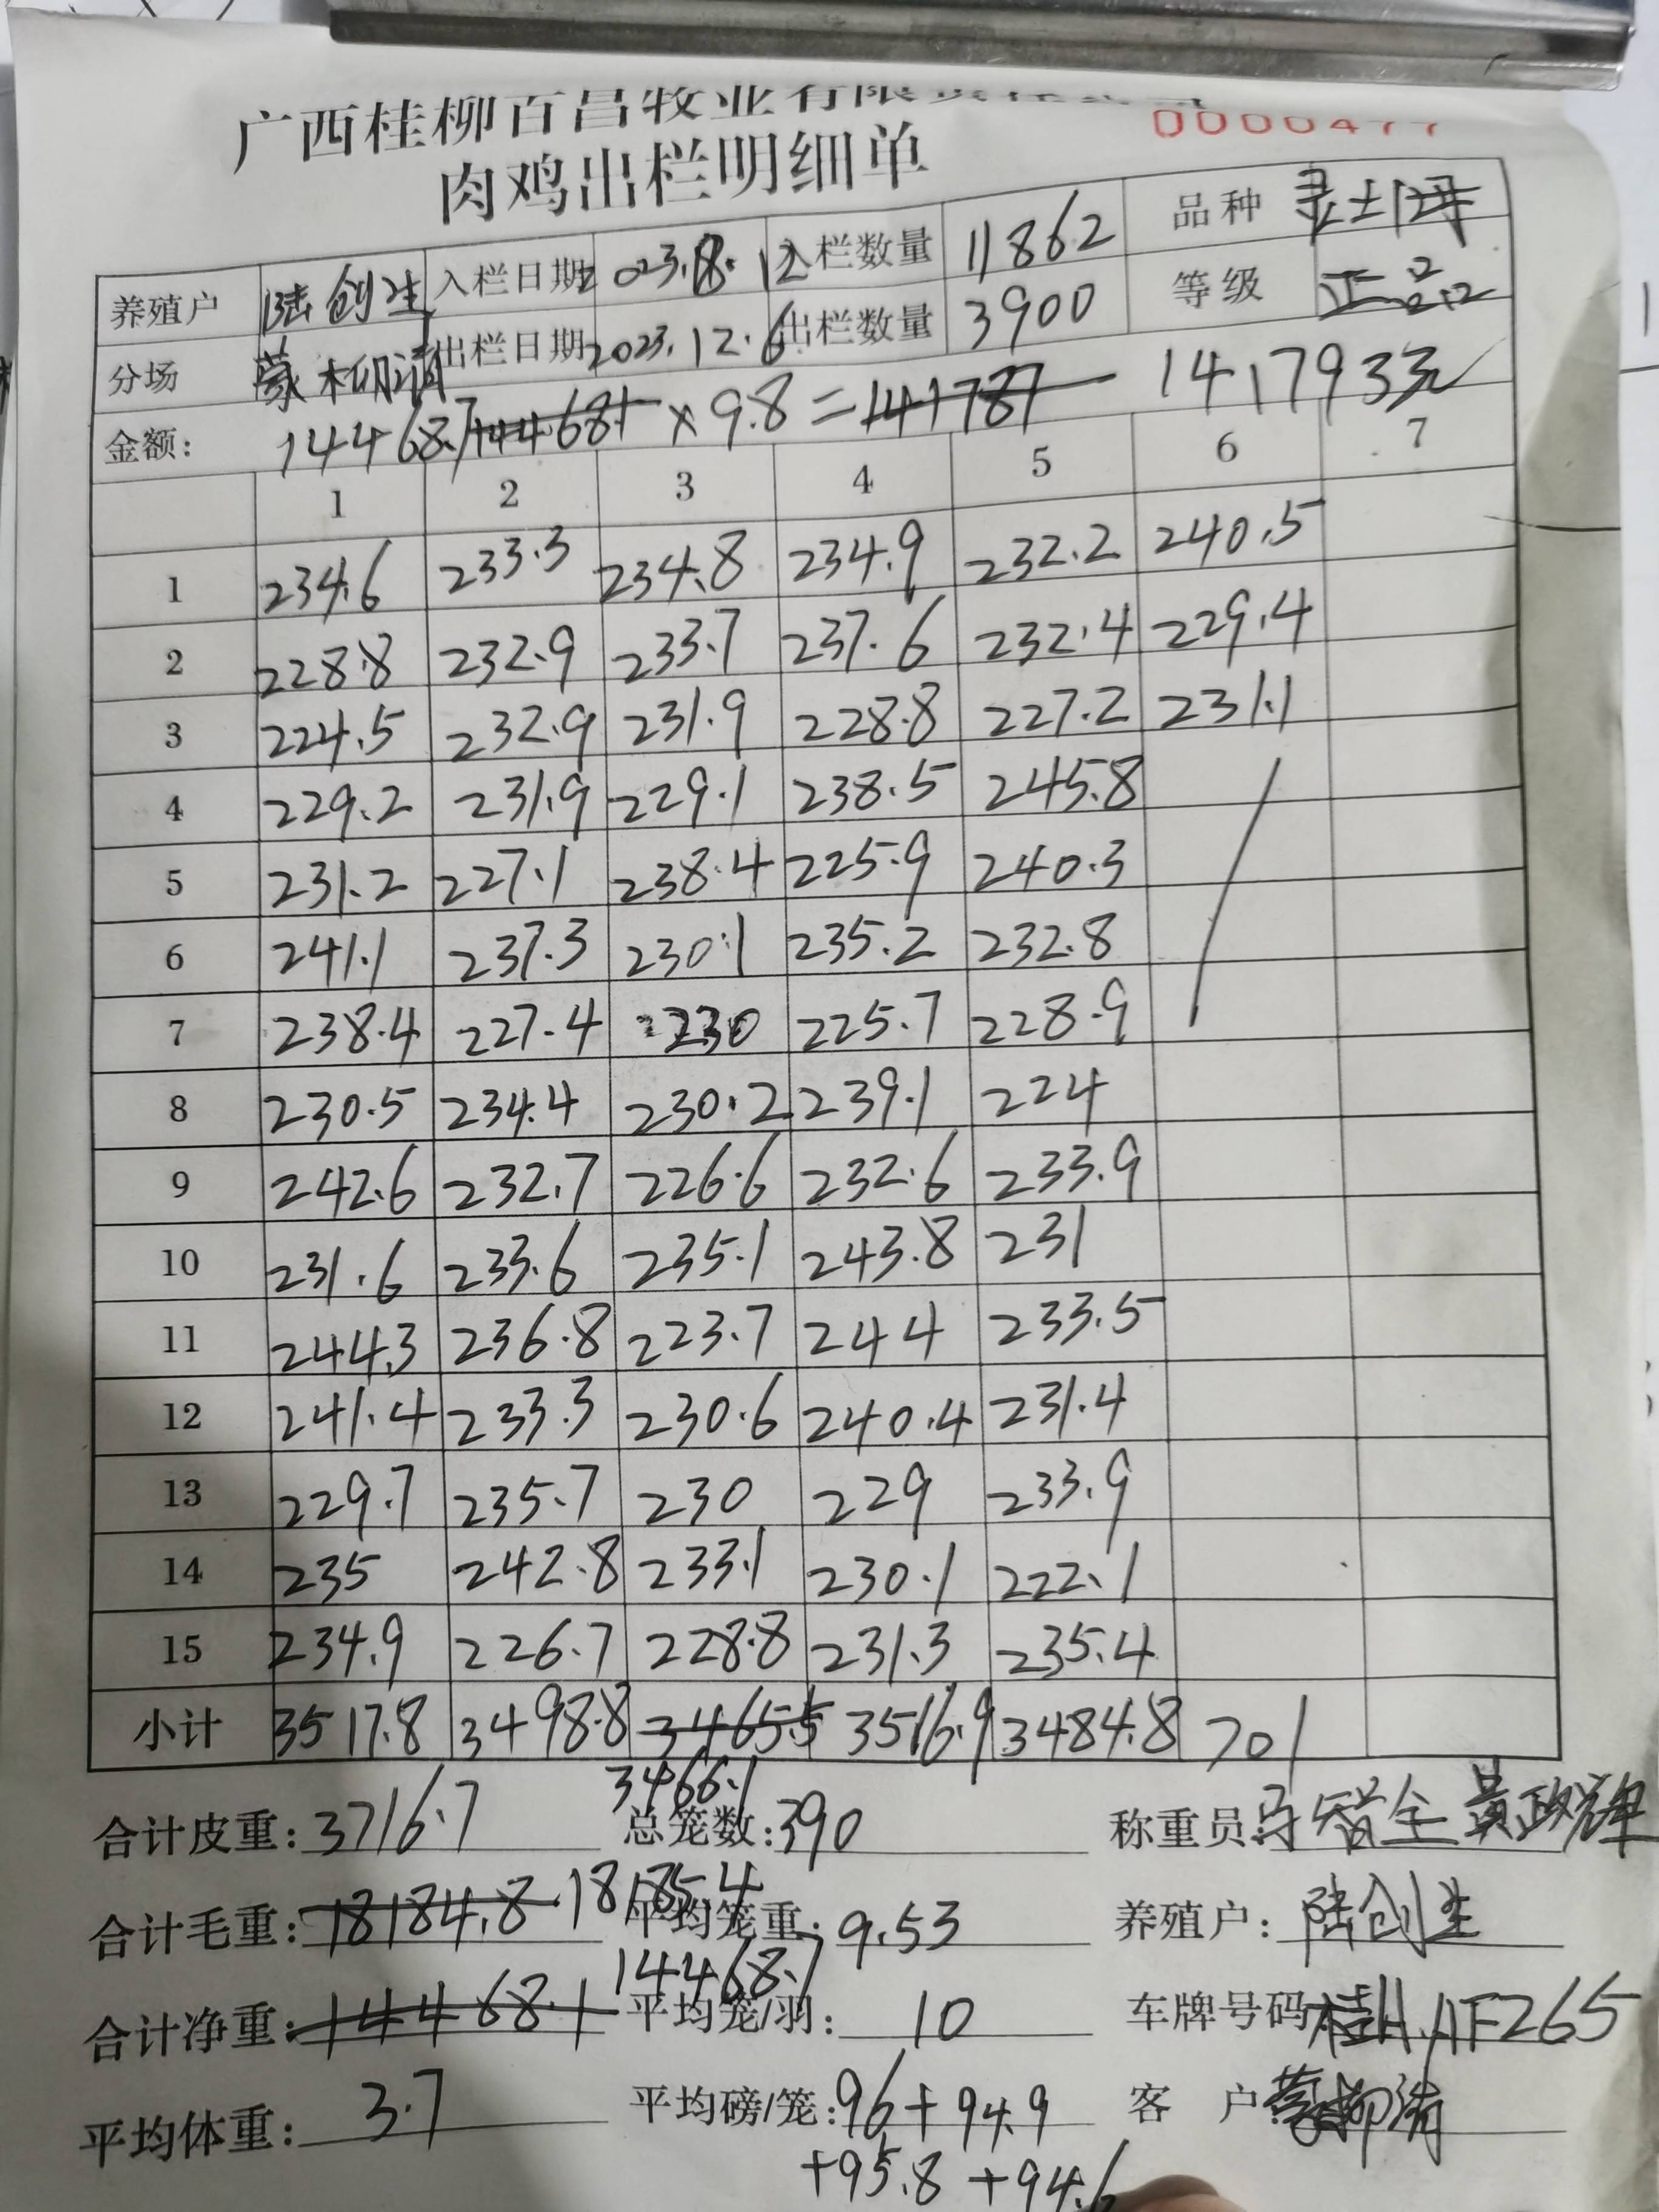 广西桂柳百昌牧业有限责任公司
0000477
肉鸡出栏明细单
养殖户 陆创生 入栏日期 2023.8.12 入栏数量 11862 品种 灵士阴
分场 蒙柳清 出栏日期 2023.12.6 出栏数量 3900 等级 正品
金额: 14468.7 144681 × 9.8 = 141787 141793元
1 2 3 4 5 6 7
1 234.6 233.3 234.8 234.9 232.2 240.5
2 228.8 232.9 233.7 237.6 232.4 229.4
3 224.5 232.9 231.9 228.8 227.2 231.1
4 229.2 231.9 229.1 238.5 245.8
5 231.2 227.1 238.4 225.9 240.3
6 241.1 237.3 230.1 235.2 232.8
7 238.4 227.4 230 225.7 228.9
8 230.5 234.4 230.2 239.1 224
9 242.6 232.7 226.6 232.6 233.9
10 231.6 233.6 235.1 243.8 231
11 244.3 236.8 223.7 244 233.5
12 241.4 233.3 230.6 240.4 231.4
13 229.7 235.7 230 229 233.9
14 235 242.8 233.1 230.1 222.1
15 234.9 226.7 228.8 231.3 235.4
小计 3517.8 3498.8 3465.5 3516.9 3484.8 701
3466.1
合计皮重: 3716.7 总笼数: 390 称重员: 黄政锋
合计毛重: 18184.8 18185.4 平均笼重: 9.53 养殖户: 陆创生
合计净重: 14468.1 14468.7 平均笼/羽: 10 车牌号码: 桂H.AF265
平均体重: 3.7 平均磅/笼: 96+94.9 客户 蒙柳清
+95.8+94.6